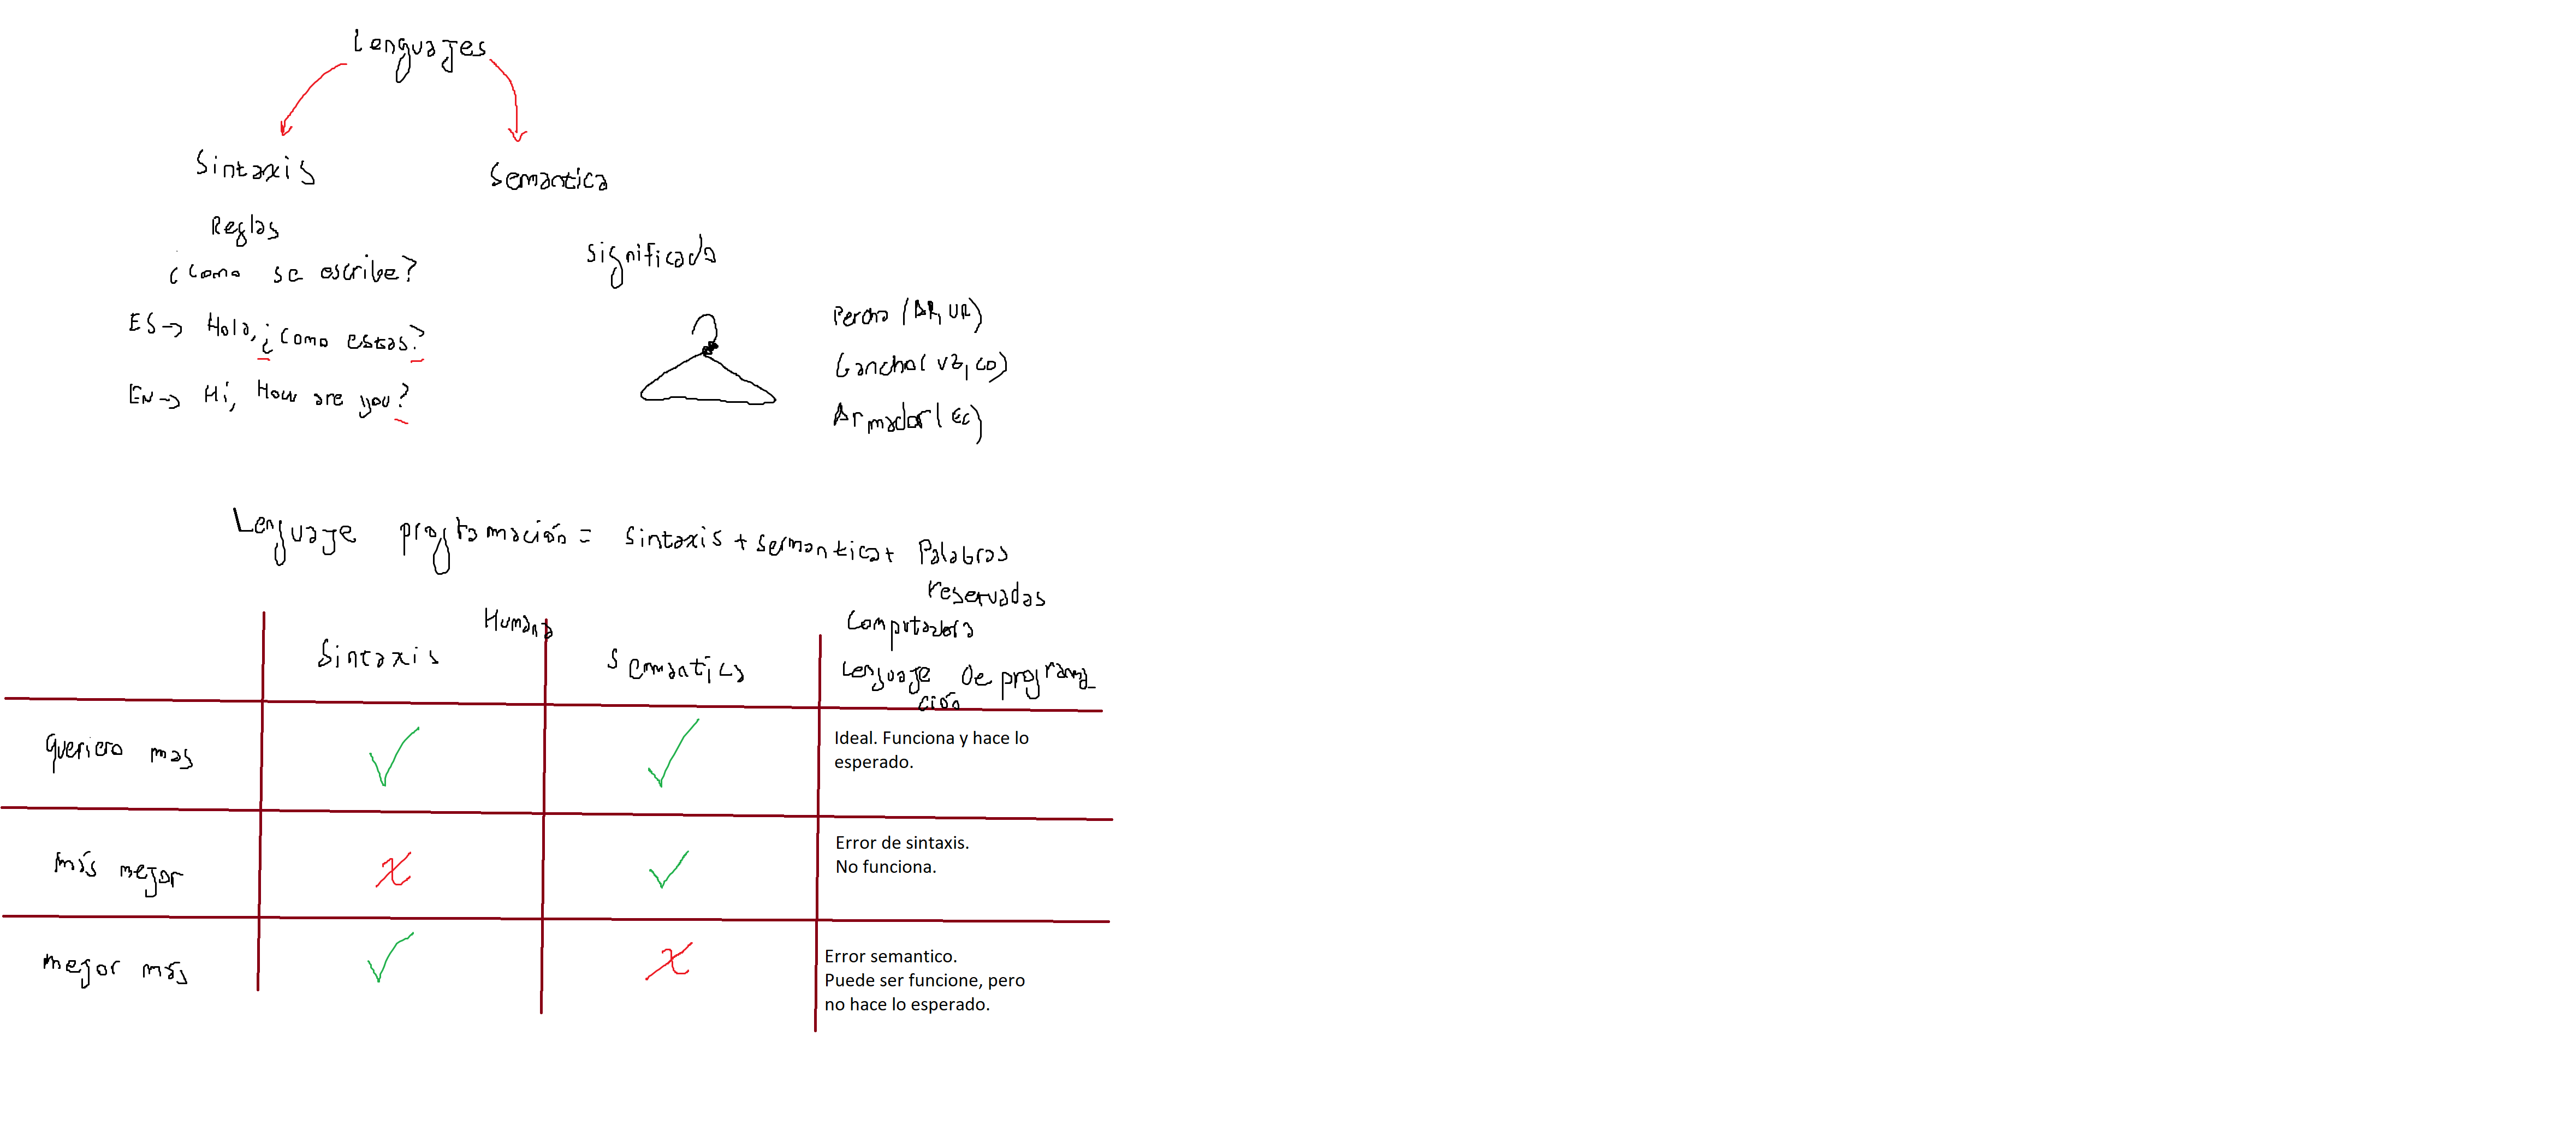 Lenguajes
Sintaxis
Semantica
Reglas
¿Como se escribe?
ES→ Hola, ¿como estas?
EN→ Hi, How are you?
significado
Percha (AR, UR)
Gancho( VZ, CO)
Armador( EC)
Lenguaje programación = sintaxis + semantica + Palabras
reservadas
Humano
Computadora
Sintaxis
Semantica
Lenguaje De programa_
ción
queriero mas
Ideal. Funciona y hace lo
esperado.
más mejor
x
Error de sintaxis.
No funciona.
mejor más
x
Error semantico.
Puede ser funcione, pero
no hace lo esperado.